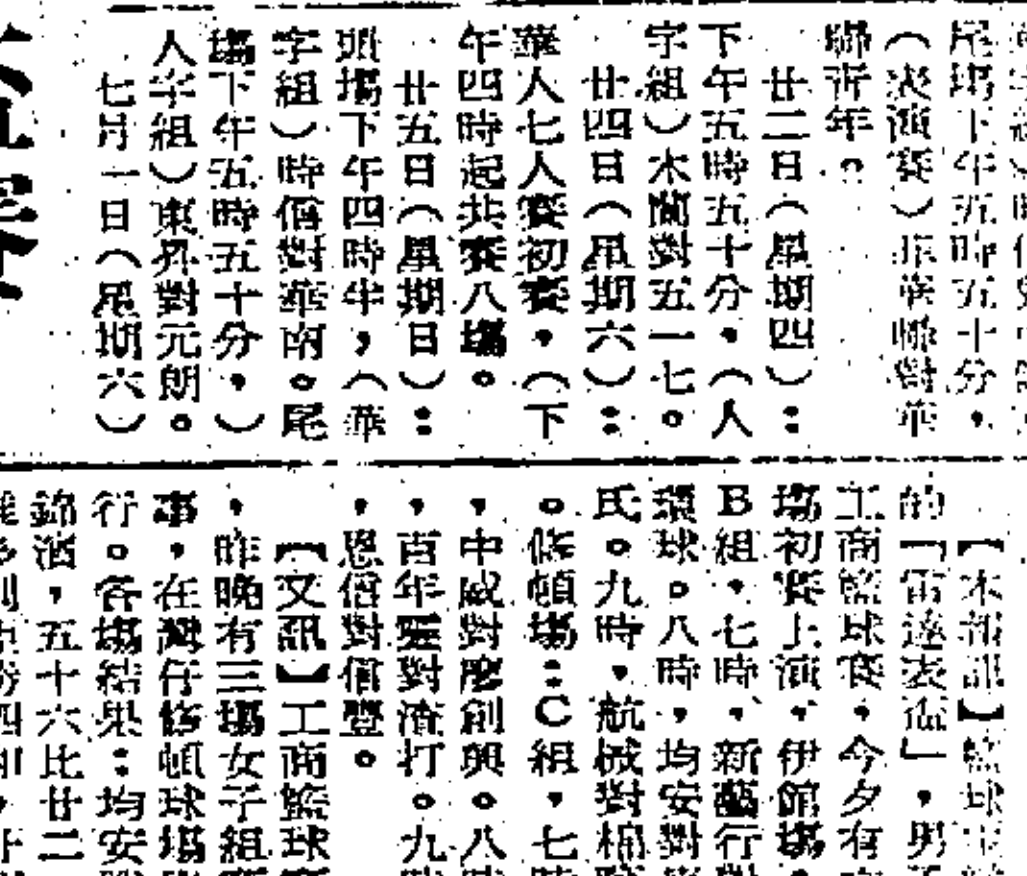 尾場下午五時五十分，
（表演賽）菲華聯對華
聯青年。
廿二日（星期四）：
下午五時五十分，（人
字組）木蘭對五一七。
廿四日（星期六）：
華人七人賽初賽，（下
午四時起共賽八場。
廿五日（星期日）：
頭場下午四時半，（華
字組）時信對華南。尾
場下午五時五十分，）
人字組）東昇對元朗。
七月一日（星期六）
【本報訊】籃球
的「雷達表盃」，男
工商籃球賽，今夕有
場初賽上演，伊館場，
B組，七時，新藝行
環球。八時，均安對
氏。九時，航械對棉
。修頓場：C組，七
，中威對廖創興。八
，百年歷對渣打。九
，恩信對信豐。
【又訊】工商籃球
，昨晚有三場女子組
事，在灣仔修頓球場
行。各場結果：均安
錦滔，五十六比廿二